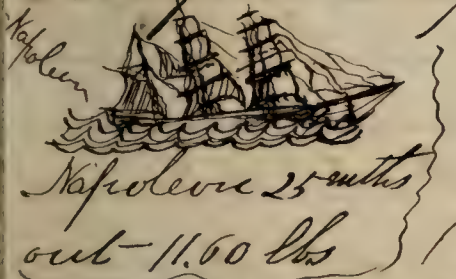 Napoleon
Napoleon 25 mths
out - 11.60 lbs